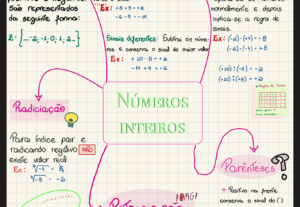 são representados
da seguinte forma:
Z: {... -2, -1, 0, 1, 2...}
Ex: +5 +3 = +8
-2 -9 = -11
Sinais diferentes: Subtrai os núme-
ros e conserva o sinal do maior valor
Ex: +10 - 8 = +2
normalmente e depois
aplica-se a regra de
sinais.
Ex: (-2)·(+4) = -8
(-2)·(-4) = +8
(+10):(-5) = -2
(+10):(+5) = +2
Radiciação
NÚMEROS
INTEIROS
Para índice par e
radicando negativo NÃO
existe valor real.
Ex:
Parênteses ?
Positivo na frente
conserva o sinal do ( )
!OMG!